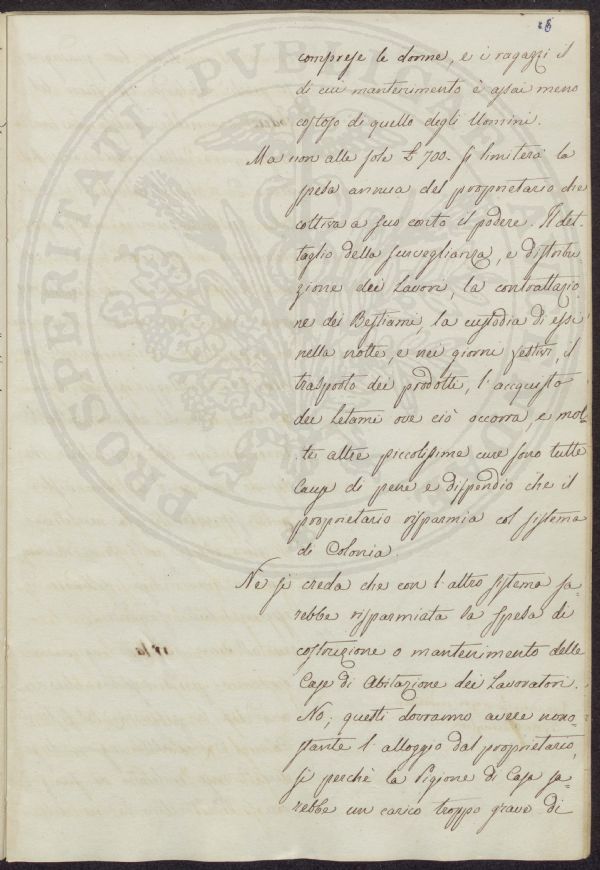 28
comprese le donne, e i ragazzi il
di cui mantenimento è assai meno
costoso di quello degli Uomini.
Ma non alle sole £ 700. si limiterà la
spesa annua del proprietario che
coltiva a suo conto il podere. Il det-
taglio della sorveglianza, e distribu
zione dei Lavori, la contrattazio
ne dei Bestiami, la custodia di essi
nella notte, e nei giorni festivi, il
trasporto dei prodotti, l'acquisto
dei Letami ove ciò occorra, e mol-
te altre piccolissime cure sono tutte
Cause di pene e dispendio che il
proprietario risparmia col sistema
di Colonia.
Ne si creda che con l'altro sistema sa-
rebbe risparmiata la spesa di
costruzione o mantenimento delle
Case di Abitazione dei Lavoratori.
No; questi dovranno avere nono-
stante l'alloggio dal proprietario,
si perchè la Pigione di Casa sa-
rebbe un carico troppo grave di
PROSPERITATI PUBLICAE